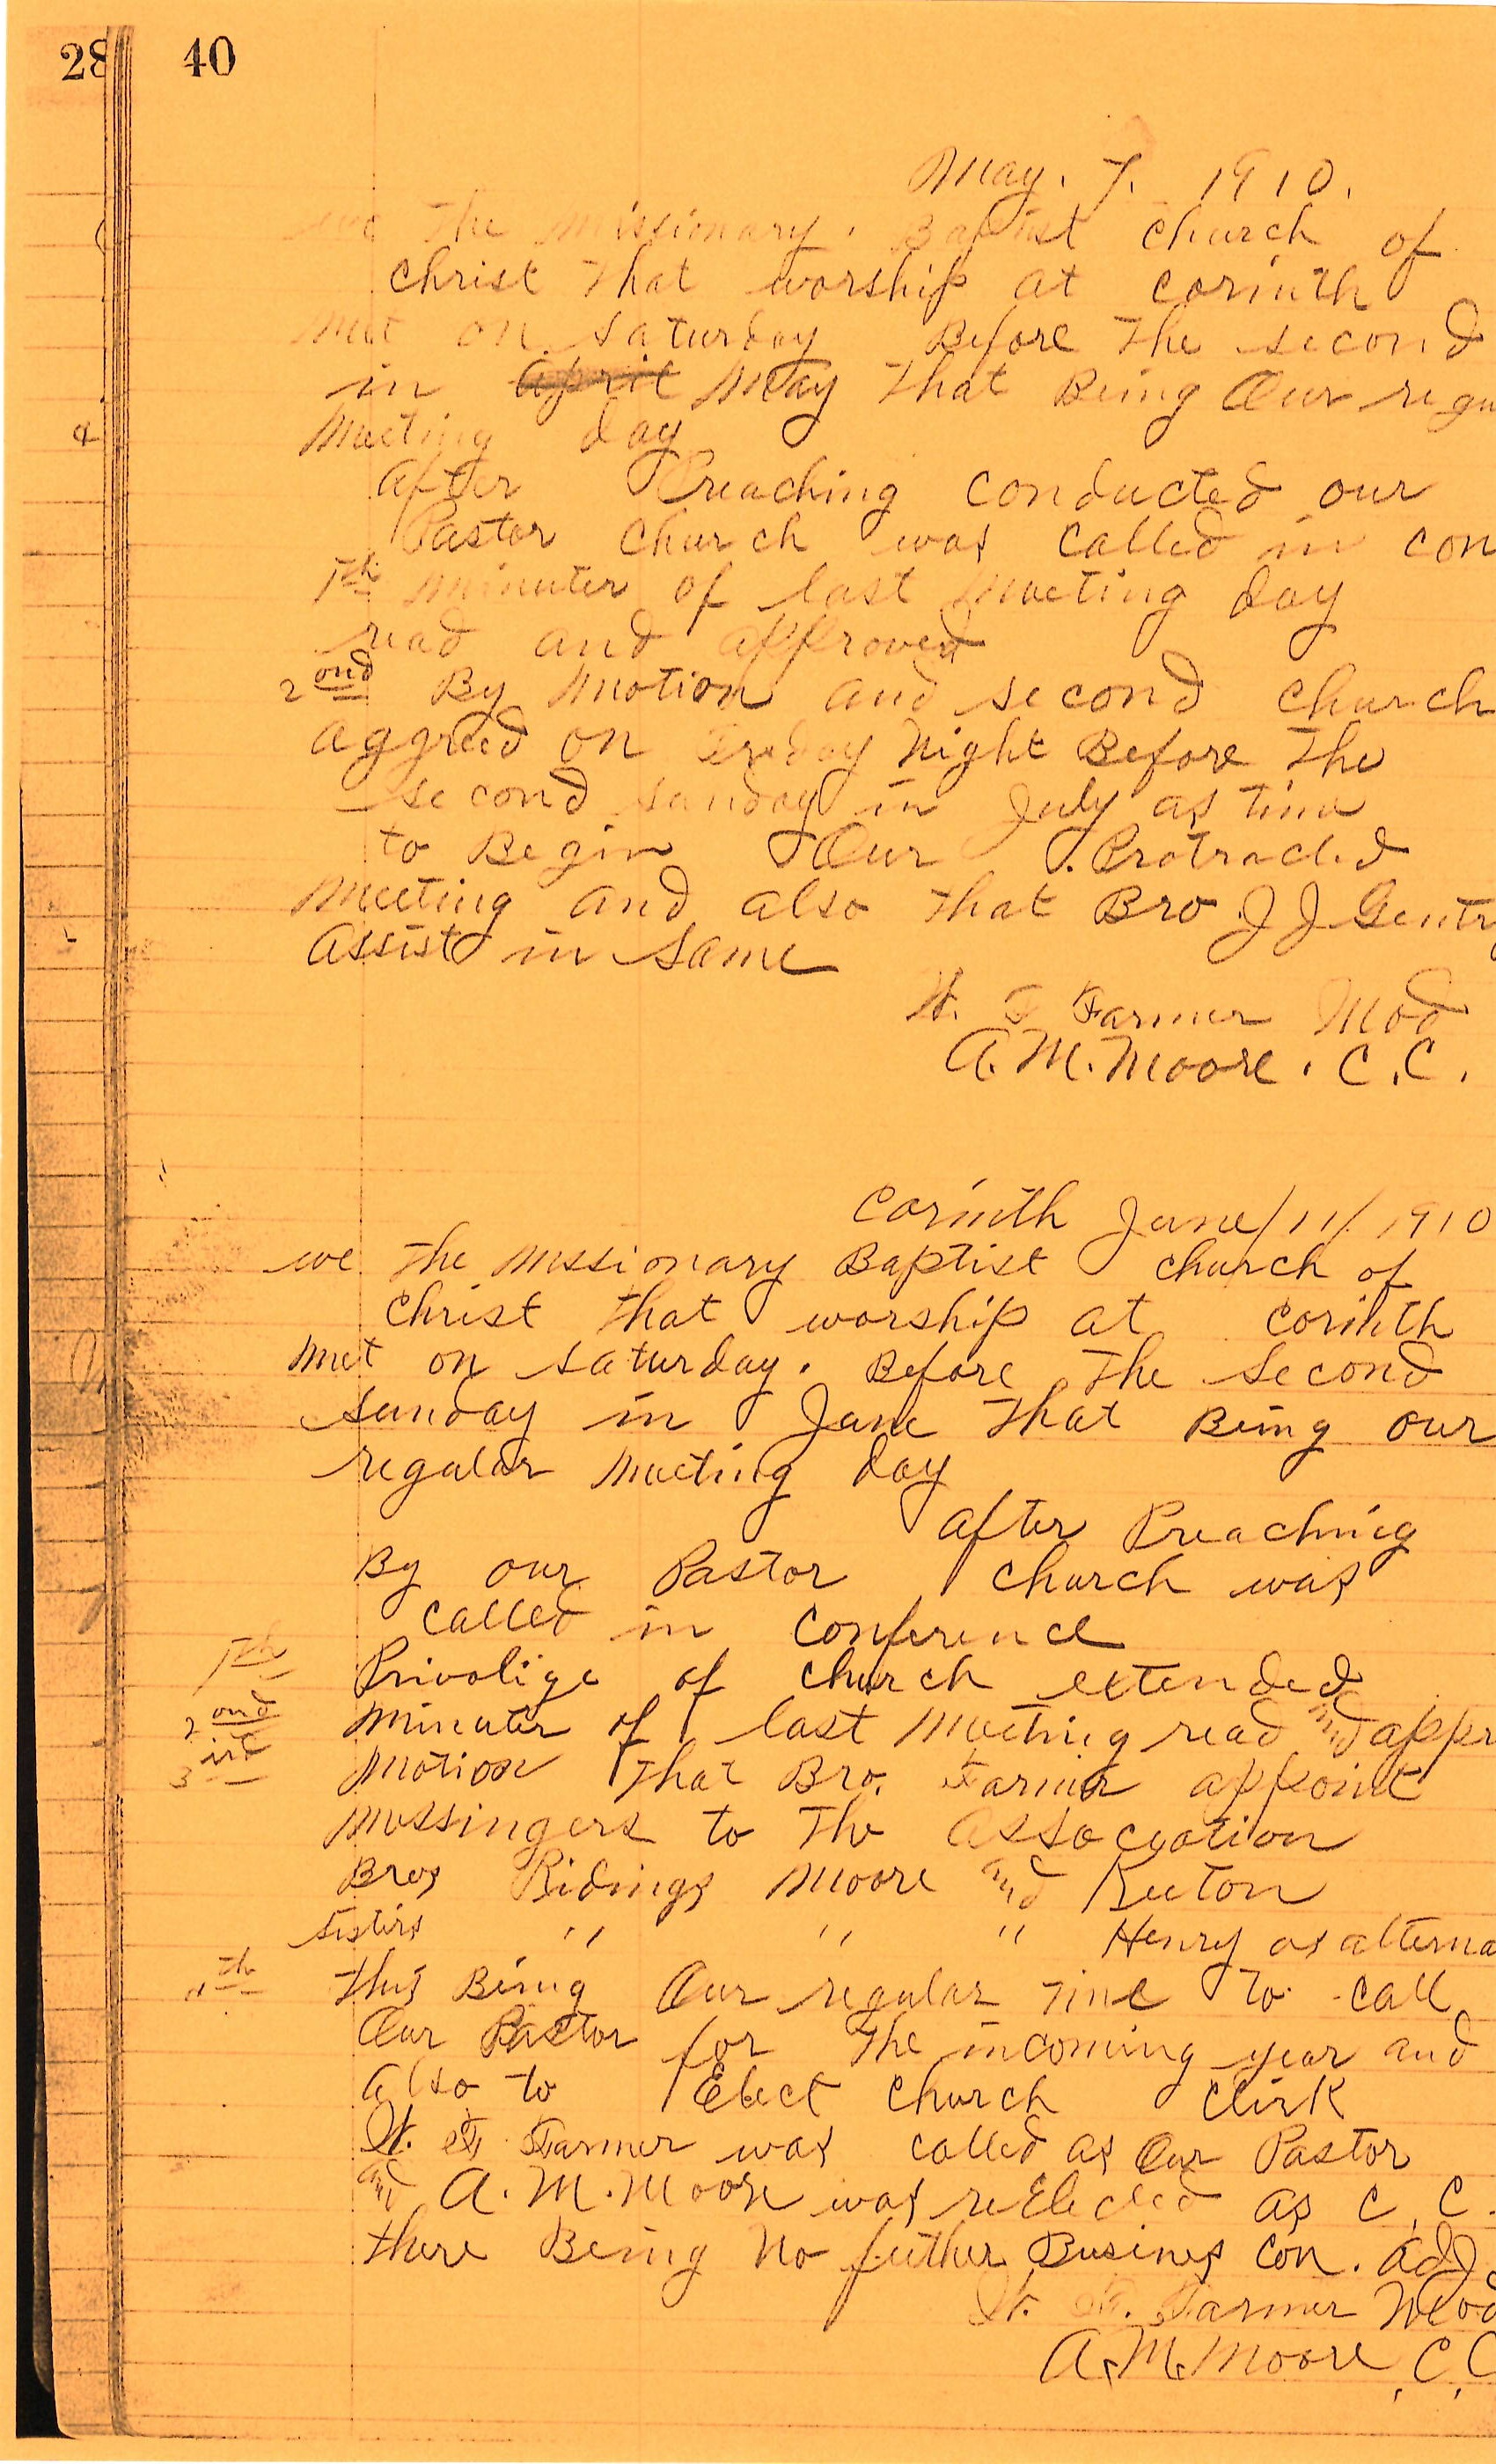 28 40
May. 7. 1910.
we the missionary. Baptist church of
christ that worship at corinth
met on saturday Before the second
in April May that Being Our regu
meeting day
after Preaching conducted our
Pastor church was called in con
1th minutes of last meeting day
read and approved
2ond By motion and second church
aggreed on Friday Night Before the
second sunday in July as time
to Begin Our Protracted
meeting and also that Bro J J Gentry
assist in same
W. F Farmer Mod
A. M. Moore. C. C.
Corinth June/11/1910
we the Missionary Baptist church of
christ that worship at corinth
met on saturday. Before the second
sunday in June that Being our
regular meeting day
after Preaching
By our Pastor church was
called in conference
1th Privolige of church extended
2ond minutes of last meeting read and appr
3ird motion that Bro. Farmer appoint
messingers to the Association
Bros Ridings Moore and
sisters " " " Henry as alterna
4th this Being Our regular time to call
Our Pastor for the incoming year and
also to Elect church clirk
W. F. Farmer was called as Our Pastor
and A. M. Moore was reElected as C. C.
there Being No futher Busines con. adj.
W. F. Farmer Mod
A. M. Moore, C, C